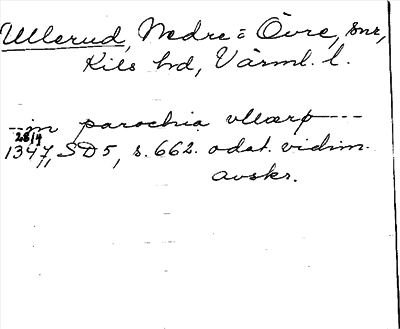 Ullerud, Nedre = Övre, snr,
Kils hd, Värml. l.
--- in parochia vllærp ---
28/4
1347, SD5, s. 662. odat. vidim.
avskr.